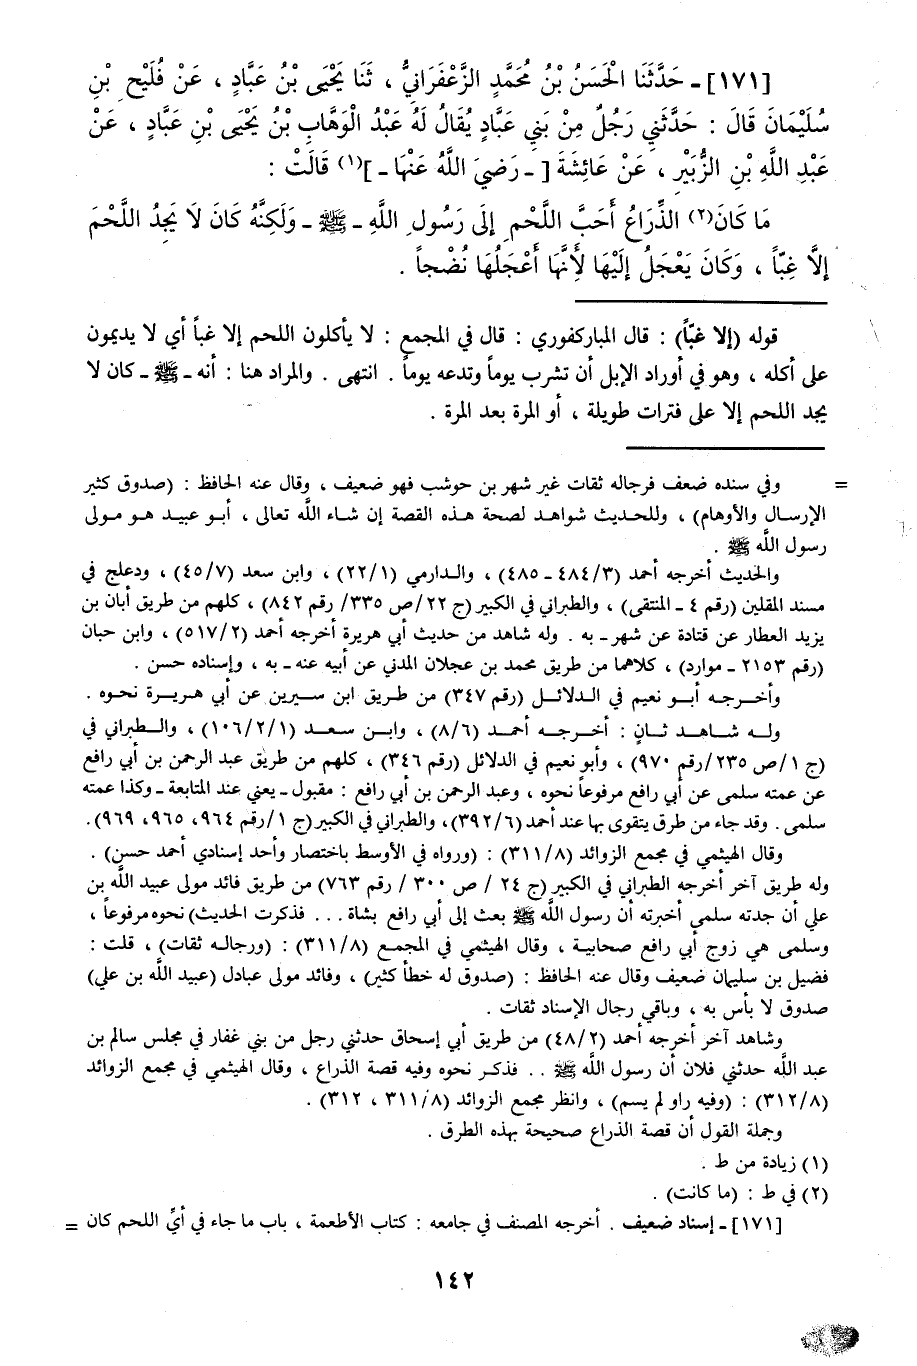 [١٧١] ـ حَدَّثَنَا الْحَسَنُ بْنُ مُحَمَّدٍ الزَّعْفَرَانِيُّ ، ثَنَا يَحْيَى بْنُ عَبَّادٍ ، عَنْ فُلَيْحِ بْنِ
سُلَيْمَانَ قَالَ : حَدَّثَنِي رَجُلٌ مِنْ بَنِي عَبَّادٍ يُقَالُ لَهُ عَبْدُ الْوَهَّابِ بْنُ يَحْيَى بْنِ عَبَّادٍ ، عَنْ
عَبْدِ اللَّهِ بْنِ الزُّبَيْرِ ، عَنْ عَائِشَةَ [ ـ رَضِيَ اللَّهُ عَنْهَا ـ ](١) قَالَتْ :
مَا كَانَ(٢) الذِّرَاعُ أَحَبَّ اللَّحْمِ إِلَى رَسُولِ اللَّهِ ـ ﷺ ـ وَلَكِنَّهُ كَانَ لَا يَجِدُ اللَّحْمَ
إِلَّا غِبّاً ، وَكَانَ يَعْجَلُ إِلَيْهَا لِأَنَّهَا أَعْجَلُهَا نُضْجاً .
قوله (إلا غبّاً) : قال المباركفوري : قال في المجمع : لا يأكلون اللحم إلا غباً أي لا يديمون
على أكله ، وهو في أوراد الإبل أن تشرب يوماً وتدعه يوماً . انتهى . والمراد هنا : أنه ـ ﷺ ـ كان لا
يجد اللحم إلا على فترات طويلة ، أو المرة بعد المرة .
= وفي سنده ضعف فرجاله ثقات غير شهر بن حوشب فهو ضعيف ، وقال عنه الحافظ : (صدوق كثير
الإرسال والأوهام) ، وللحديث شواهد لصحة هذه القصة إن شاء الله تعالى ، أبو عبيد هو مولى
رسول الله ﷺ .
والحديث أخرجه أحمد (٣/ ٤٨٤ ـ ٤٨٥) ، والدارمي (١/ ٢٢) ، وابن سعد (٧/ ٤٥) ، ودعلج في
مسند المقلين (رقم ٤ ـ المنتقى) ، والطبراني في الكبير (ج ٢٢/ ص ٣٣٥/ رقم ٨٤٢) ، كلهم من طريق أبان بن
يزيد العطار عن قتادة عن شهر ـ به . وله شاهد من حديث أبي هريرة أخرجه أحمد (٢/ ٥١٧) ، وابن حبان
(رقم ٢١٥٣ ـ موارد) ، كلاهما من طريق محمد بن عجلان المدني عن أبيه عنه ـ به ، وإسناده حسن .
وأخرجه أبو نعيم في الدلائل (رقم ٣٤٧) من طريق ابن سيرين عن أبي هريرة نحوه .
وله شاهد ثانٍ : أخرجه أحمد (٦/ ٨) ، وابن سعد (١/ ٢/ ١٠٦) ، والطبراني في
(ج ١/ ص ٢٣٥/ رقم ٩٧٠) ، وأبو نعيم في الدلائل (رقم ٣٤٦) ، كلهم من طريق عبد الرحمن بن أبي رافع
عن عمته سلمى عن أبي رافع مرفوعاً نحوه ، وعبد الرحمن بن أبي رافع : مقبول ـ يعني عند المتابعة ـ وكذا عمته
سلمى . وقد جاء من طرق يتقوى بها عند أحمد (٦/ ٣٩٢) ، والطبراني في الكبير (ج ١/ رقم ٩٦٤، ٩٦٥، ٩٦٩).
وقال الهيثمي في مجمع الزوائد (٨/ ٣١١) : (ورواه في الأوسط باختصار وأحد إسنادي أحمد حسن) .
وله طريق آخر أخرجه الطبراني في الكبير (ج ٢٤ / ص ٣٠٠ / رقم ٧٦٣) من طريق فائد مولى عبيد الله بن
علي أن جدته سلمى أخبرته أن رسول الله ﷺ بعث إلى أبي رافع بشاة . . . فذكرت الحديث) نحوه مرفوعاً ،
وسلمى هي زوج أبي رافع صحابية ، وقال الهيثمي في المجمع (٨/ ٣١١) : (ورجاله ثقات) ، قلت :
فضيل بن سليمان ضعيف وقال عنه الحافظ : (صدوق له خطأ كثير) ، وفائد مولى عبادل (عبيد الله بن علي)
صدوق لا بأس به ، وباقي رجال الإسناد ثقات .
وشاهد آخر أخرجه أحمد (٢/ ٤٨) من طريق أبي إسحاق حدثني رجل من بني غفار في مجلس سالم بن
عبد الله حدثني فلان أن رسول الله ﷺ . . فذكر نحوه وفيه قصة الذراع ، وقال الهيثمي في مجمع الزوائد
(٨/ ٣١٢) : (وفيه راو لم يسم) ، وانظر مجمع الزوائد (٨/ ٣١١ ، ٣١٢) .
وجملة القول أن قصة الذراع صحيحة بهذه الطرق .
(١) زيادة من ط .
(٢) في ط : (ما كانت) .
[١٧١] ـ إسناد ضعيف . أخرجه المصنف في جامعه : كتاب الأطعمة ، باب ما جاء في أيِّ اللحم كان =
١٤٢